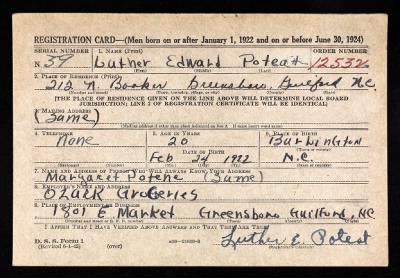 REGISTRATION CARD—(Men born on or after January 1, 1922 and on or before June 30, 1924)
SERIAL NUMBER 1. NAME (Print) ORDER NUMBER
N 39 Luther Edward Poteat 12532
(First) (Middle) (Last)
2. PLACE OF RESIDENCE (Print)
212 N. Booker Greensboro Guilford N.C.
[THE PLACE OF RESIDENCE GIVEN ON THE LINE ABOVE WILL DETERMINE LOCAL BOARD
JURISDICTION; LINE 2 OF REGISTRATION CERTIFICATE WILL BE IDENTICAL]
3. MAILING ADDRESS
(Same)
[Mailing address if other than place indicated on line 2. If same insert word same]
4. TELEPHONE 5. AGE IN YEARS 6. PLACE OF BIRTH
None 20 Burlington
DATE OF BIRTH
Feb 24 1922 N.C.
7. NAME AND ADDRESS OF PERSON WHO WILL ALWAYS KNOW YOUR ADDRESS
Margaret Potene (Same)
8. EMPLOYER'S NAME AND ADDRESS
Ozark Groceries
9. PLACE OF EMPLOYMENT OR BUSINESS
1801 E Market Greensboro Guilford, NC
I AFFIRM THAT I HAVE VERIFIED ABOVE ANSWERS AND THAT THEY ARE TRUE.
D. S. S. Form 1
(Revised 6-9-42) (over)
Luther E. Poteat